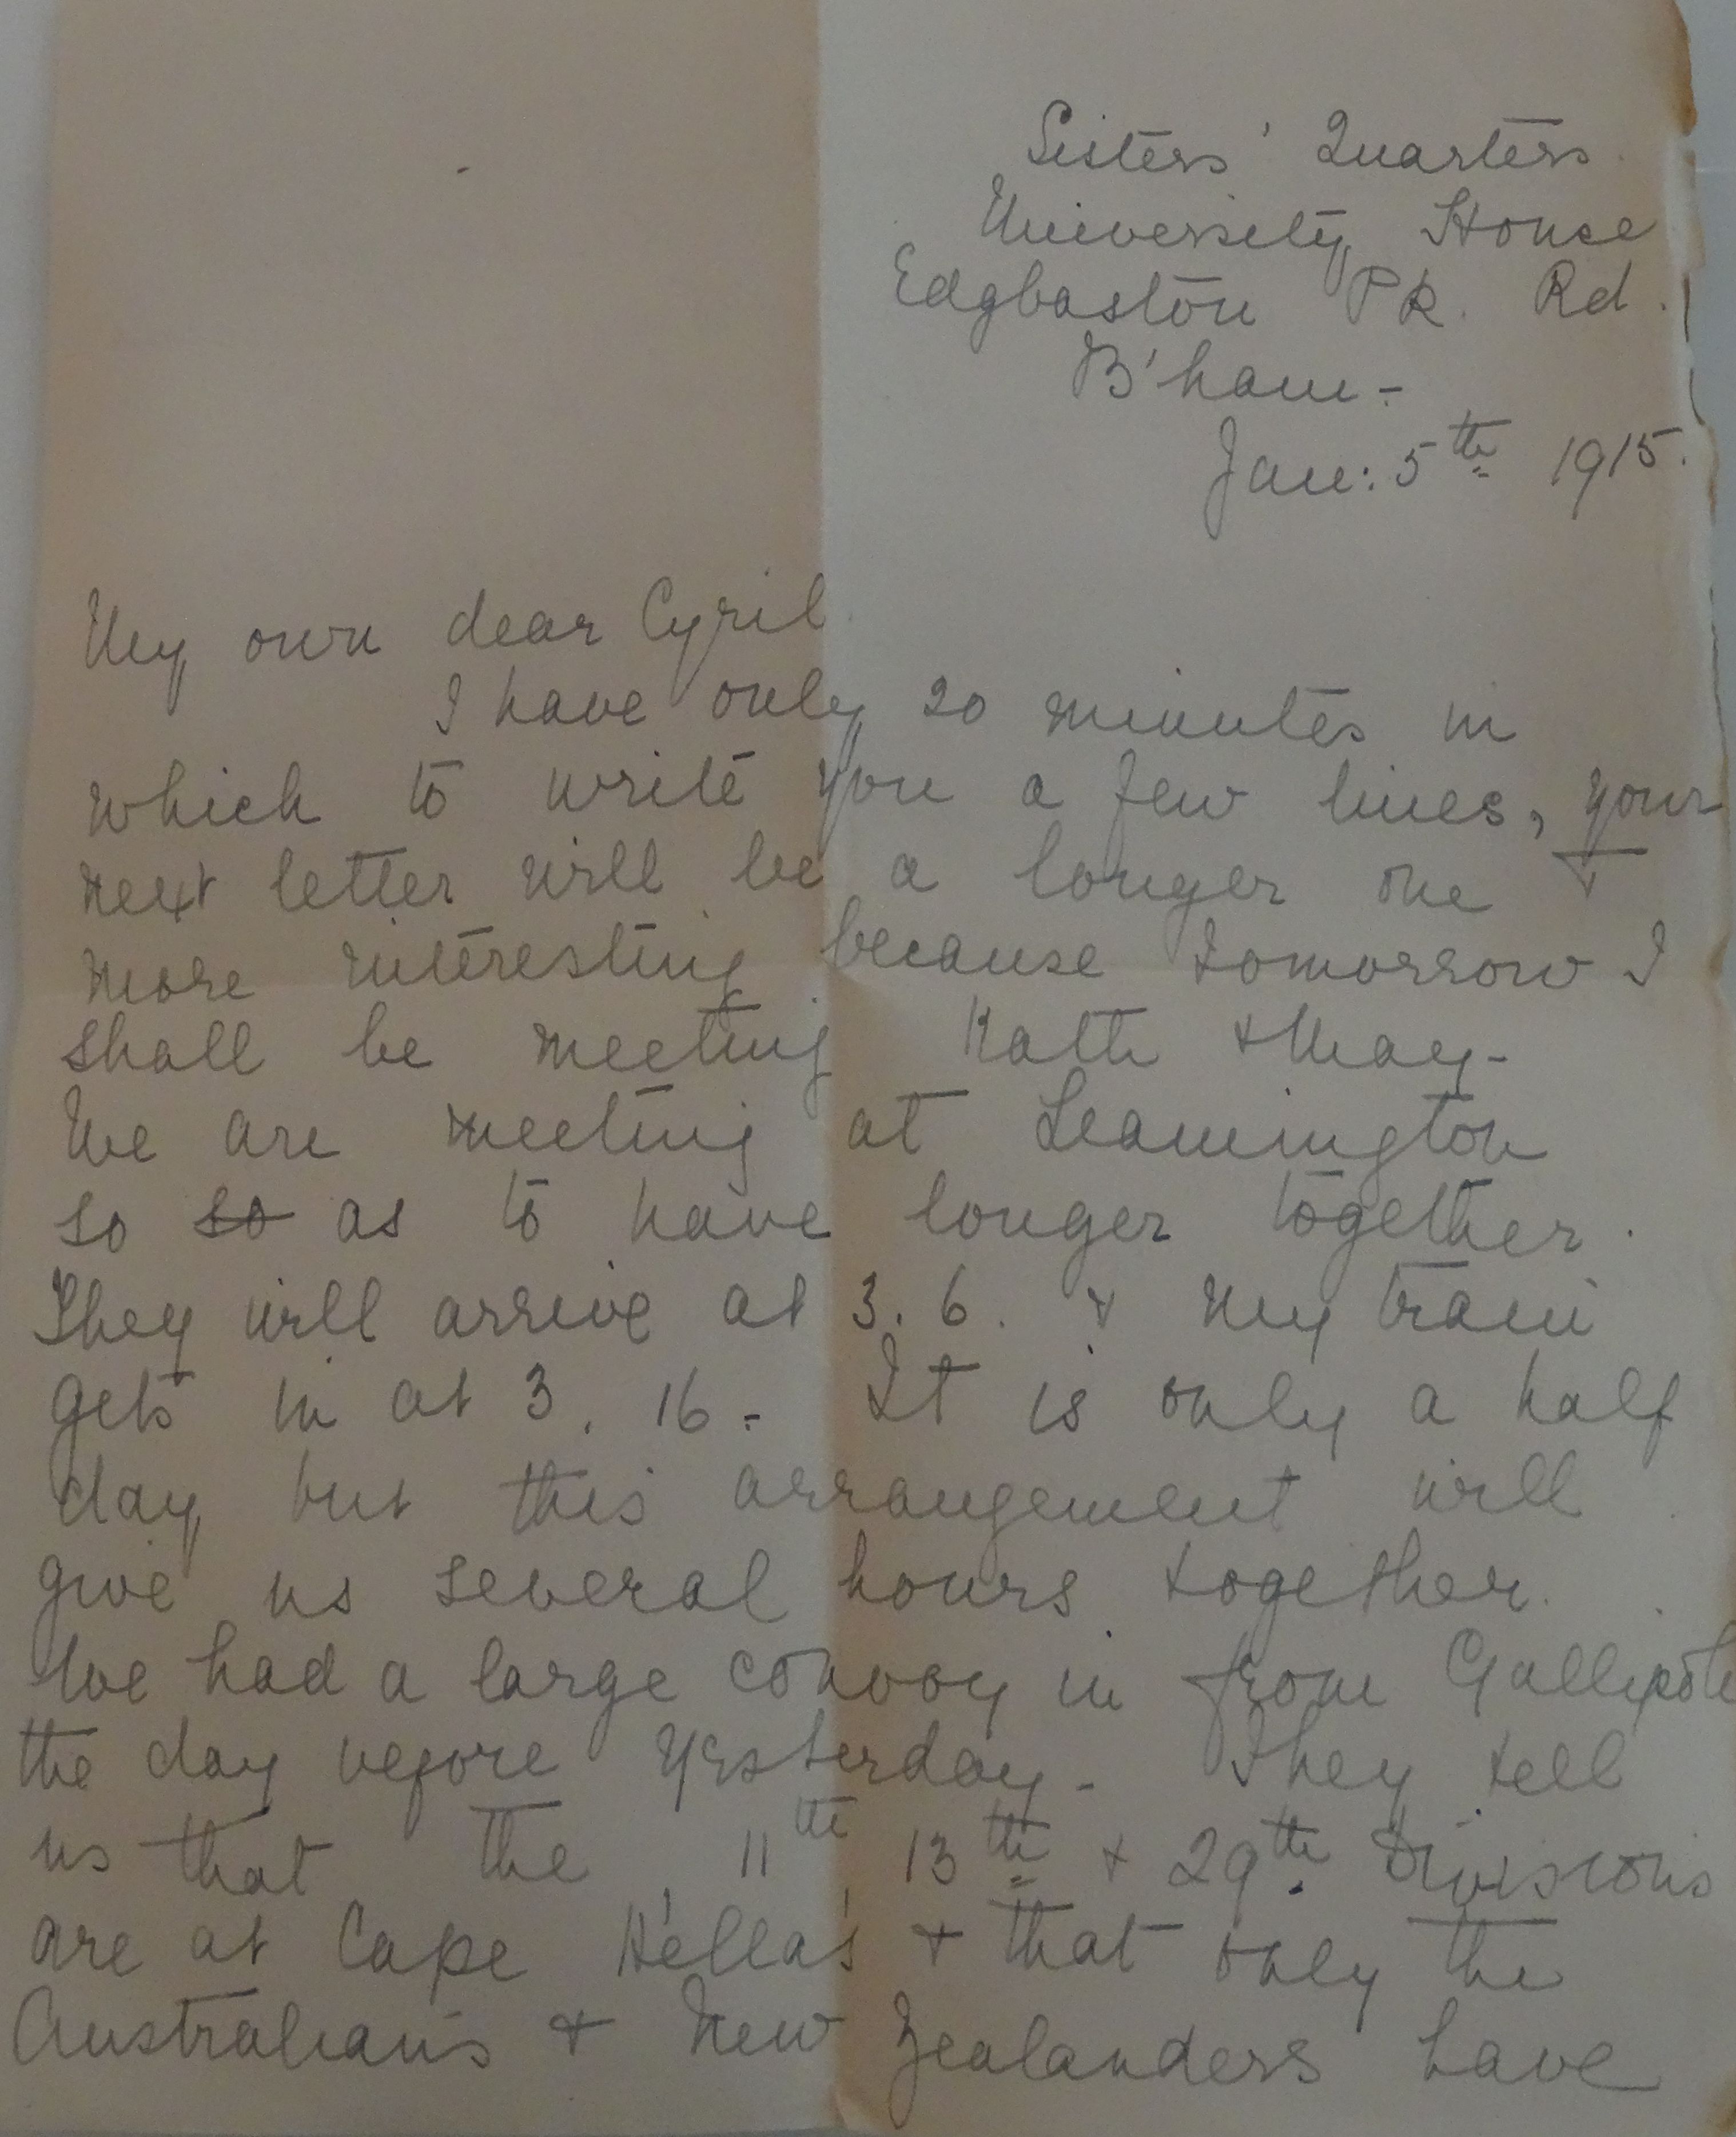 Sisters' Quarters
University House
Edgbaston Pk. Rd.
B'ham-
Jan: 5th 1915.
My own dear Cyril
I have only 20 minutes in
which to write you a few lines, your
next letter will be a longer one +
more interesting because tomorrow I
shall be meeting Kath + May-
We are meeting at Leamington
so so as to have longer together.
They will arrive at 3.6. + my train
gets in at 3.16- It is only a half
day but this arrangement will
give us several hours together.
We had a large convoy in from Gallipoli
the day before yesterday- They tell
us that the 11th, 13th + 29th Divisions
are at Cape Hella's + that only the
Australians + New Zealanders have